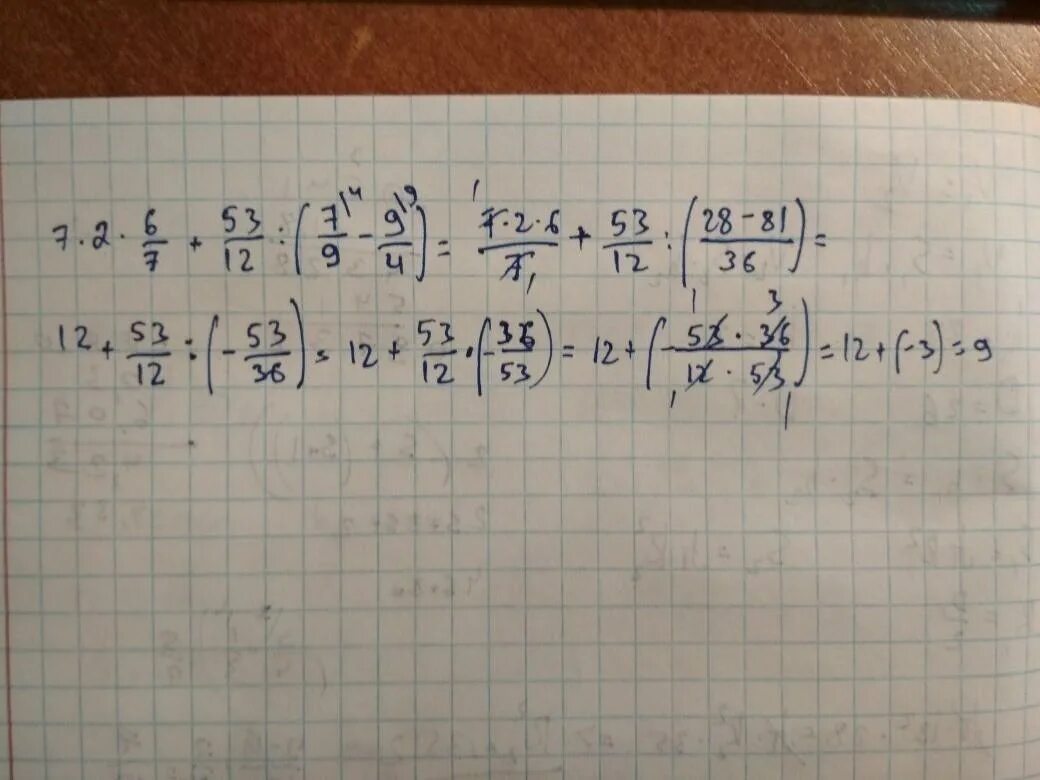 7 · 2 · 6/7 + 53/12 : (7/9 |4 - 9/4 |9) = 7 · 2 · 6/7 + 53/12 : (28 - 81/36) =
12 + 53/12 : (- 53/36) = 12 + 53/12 · (- 36/53) = 12 + (- 53 · 36/12 · 53) = 12 + (-3) = 9